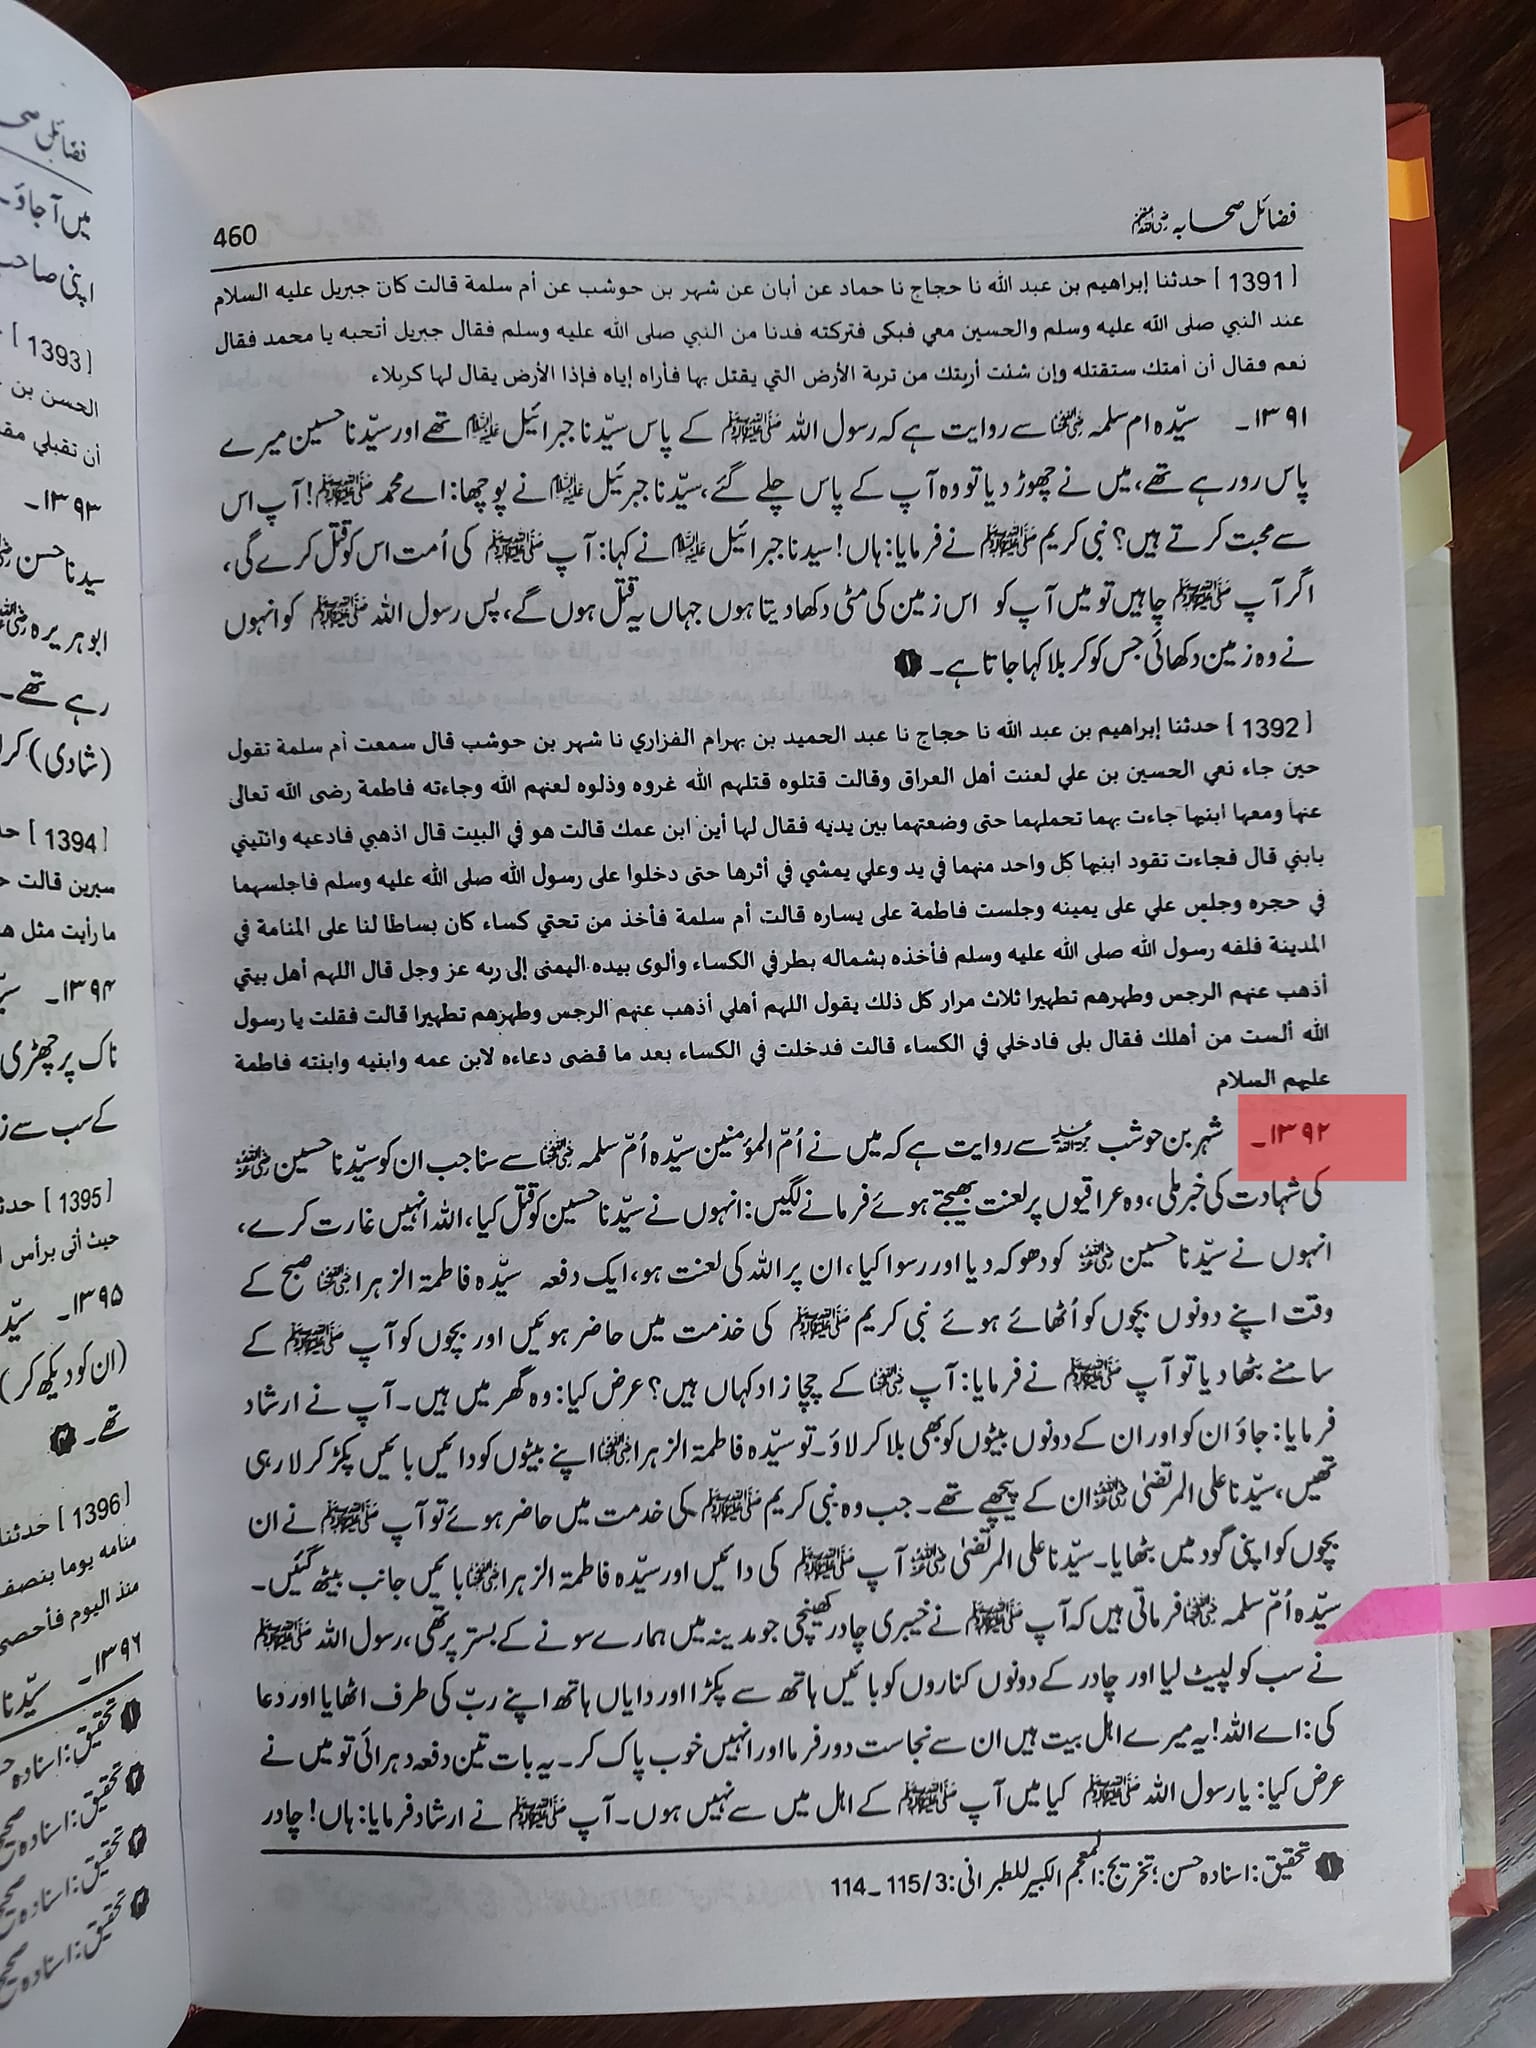 فضائل صحابہ رضی اللہ عنہم
460
[1391] حدثنا إبراهيم بن عبد الله نا حجاج نا حماد عن أبان عن شهر بن حوشب عن أم سلمة قالت كان جبريل عليه السلام
عند النبي صلى الله عليه وسلم والحسين معي فبكى فتركته فدنا من النبي صلى الله عليه وسلم فقال جبريل أتحبه يا محمد فقال
نعم فقال أن أمتك ستقتله وإن شئت أريتك من تربة الأرض التي يقتل بها فأراه إياه فإذا الأرض يقال لها كربلاء
۱۳۹۱۔ سیّدہ ام سلمہ رضی اللہ عنہا سے روایت ہے کہ رسول اللہ ﷺ کے پاس سیّدنا جبرائیل علیہ السلام تھے اور سیّدنا حسین میرے
پاس رو رہے تھے، میں نے چھوڑ دیا تو وہ آپ کے پاس چلے گئے، سیّدنا جبرئیل علیہ السلام نے پوچھا: اے محمد ﷺ! آپ اس
سے محبت کرتے ہیں؟ نبی کریم ﷺ نے فرمایا: ہاں! سیدنا جبرائیل علیہ السلام نے کہا: آپ ﷺ کی اُمت اس کو قتل کرے گی،
اگر آپ ﷺ چاہیں تو میں آپ کو اس زمین کی مٹی دکھا دیتا ہوں جہاں یہ قتل ہوں گے، پس رسول اللہ ﷺ کو انہوں
نے وہ زمین دکھائی جس کو کربلا کہا جاتا ہے۔ ❶
[1392] حدثنا إبراهيم بن عبد الله نا حجاج نا عبد الحميد بن بهرام الفزاري نا شهر بن حوشب قال سمعت أم سلمة تقول
حين جاء نعي الحسين بن علي لعنت أهل العراق وقالت قتلوه قتلهم الله غروه وذلوه لعنهم الله وجاءته فاطمة رضى الله تعالى
عنها ومعها ابنيها جاءت بهما تحملهما حتى وضعتهما بين يديه فقال لها أين ابن عمك قالت هو في البيت قال اذهبي فادعيه وائتيني
بابني قال فجاءت تقود ابنيها كل واحد منهما في يد وعلي يمشي في أثرها حتى دخلوا على رسول الله صلى الله عليه وسلم فاجلسهما
في حجره وجلس علي على يمينه وجلست فاطمة على يساره قالت أم سلمة فأخذ من تحتي كساء كان بساطا لنا على المنامة في
المدينة فلفه رسول الله صلى الله عليه وسلم فأخذه بشماله بطرفي الكساء وألوى بيده اليمنى إلى ربه عز وجل قال اللهم أهل بيتي
أذهب عنهم الرجس وطهرهم تطهيرا ثلاث مرار كل ذلك يقول اللهم أهلي أذهب عنهم الرجس وطهرهم تطهيرا قالت فقلت يا رسول
الله ألست من أهلك فقال بلى فادخلي في الكساء قالت فدخلت في الكساء بعد ما قضى دعاءه لابن عمه وابنيه وابنته فاطمة
عليهم السلام
۱۳۹۲۔ شہر بن حوشب رحمہ اللہ سے روایت ہے کہ میں نے اُمّ المؤمنین سیّدہ اُمّ سلمہ رضی اللہ عنہا سے سنا جب ان کو سیّدنا حسین رضی اللہ عنہ
کی شہادت کی خبر ملی، وہ عراقیوں پر لعنت بھیجتے ہوئے فرمانے لگیں: انہوں نے سیّدنا حسین کو قتل کیا، اللہ انہیں غارت کرے،
انہوں نے سیّدنا حسین رضی اللہ عنہ کو دھوکہ دیا اور رسوا کیا، ان پر اللہ کی لعنت ہو، ایک دفعہ سیّدہ فاطمۃ الزہرا رضی اللہ عنہا صبح کے
وقت اپنے دونوں بچوں کو اُٹھائے ہوئے نبی کریم ﷺ کی خدمت میں حاضر ہوئیں اور بچوں کو آپ ﷺ کے
سامنے بٹھا دیا تو آپ ﷺ نے فرمایا: آپ رضی اللہ عنہا کے چچا زاد کہاں ہیں؟ عرض کیا: وہ گھر میں ہیں۔ آپ نے ارشاد
فرمایا: جاؤ ان کو اور ان کے دونوں بیٹوں کو بھی بلا کر لاؤ۔ تو سیّدہ فاطمۃ الزہرا رضی اللہ عنہا اپنے بیٹوں کو دائیں بائیں پکڑ کر لا رہی
تھیں، سیّدنا علی المرتضیٰ رضی اللہ عنہ ان کے پیچھے تھے۔ جب وہ نبی کریم ﷺ کی خدمت میں حاضر ہوئے تو آپ ﷺ نے ان
بچوں کو اپنی گود میں بٹھایا۔ سیّدنا علی المرتضیٰ رضی اللہ عنہ آپ ﷺ کی دائیں اور سیّدہ فاطمۃ الزہرا رضی اللہ عنہا بائیں جانب بیٹھ گئیں۔
سیّدہ اُمّ سلمہ رضی اللہ عنہا فرماتی ہیں کہ آپ ﷺ نے خیبری چادر کھینچی جو مدینہ میں ہمارے سونے کے بستر پر تھی، رسول اللہ ﷺ
نے سب کو لپیٹ لیا اور چادر کے دونوں کناروں کو بائیں ہاتھ سے پکڑا اور دایاں ہاتھ اپنے ربّ کی طرف اٹھایا اور دعا
کی: اے اللہ! یہ میرے اہل بیت ہیں ان سے نجاست دور فرما اور انہیں خوب پاک کر۔ یہ بات تین دفعہ دہرائی تو میں نے
عرض کیا: یا رسول اللہ ﷺ کیا میں آپ ﷺ کے اہل میں سے نہیں ہوں۔ آپ ﷺ نے ارشاد فرمایا: ہاں! چادر
❶ تحقیق: اسنادہ حسن؛ تخریج: المعجم الکبیر للطبرانی: 115/3۔114
میں آ جاؤ۔
اپنی صاحب
[1393]
الحسن بن
أن تقبلي
۱۳۹۳۔
سیدنا حسن
ابو ہریرہ
رہے تھے۔
(شادی)
[1394]
سيرين قالت
ما رأيت مثل
۱۳۹۴۔
ناک پر چھڑی
کے سب سے
[1395]
حيث أتى برأس
۱۳۹۵۔
(ان کو دیکھ کر)
تھے۔
[1396] حدثنا
منامه يوما بنصف
منذ اليوم
۱۳۹۶۔ سیّدنا
تحقیق: اسنادہ
تحقیق: اسنادہ صحیح
تحقیق: اسنادہ صحیح
تحقیق: اسنادہ صحیح